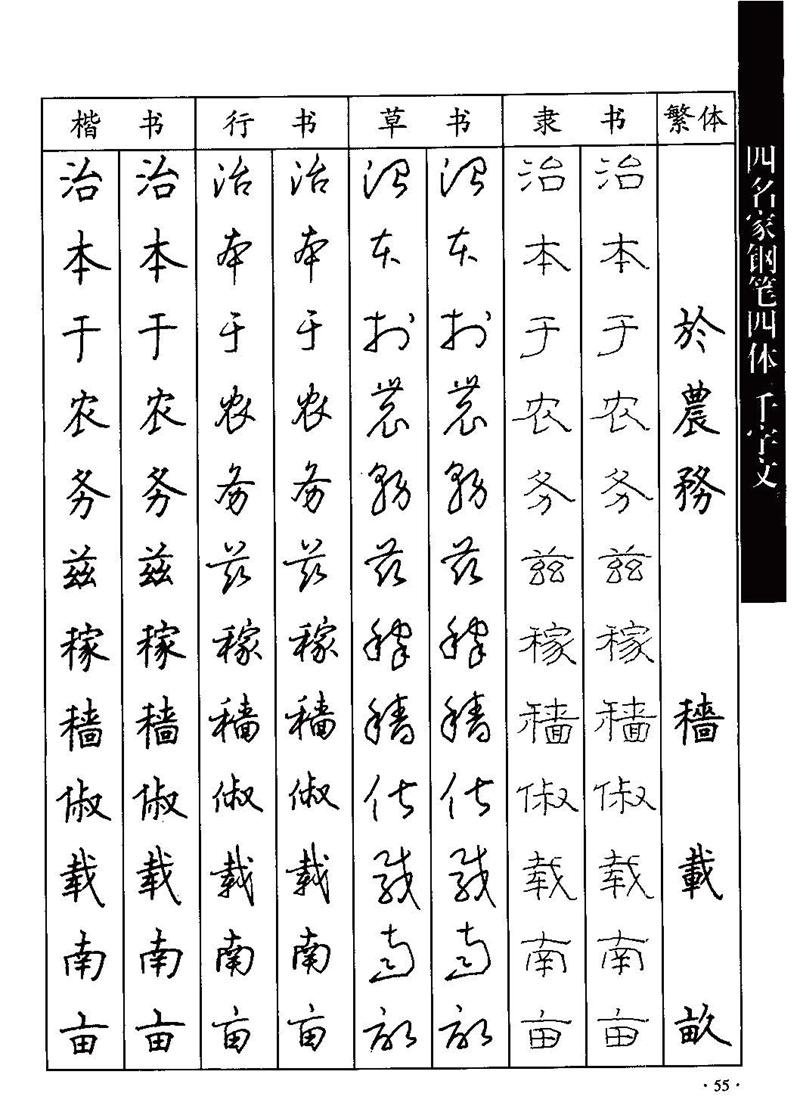 楷书 行书 草书 隶书 繁体
治本于农务兹稼穑俶载南亩
治本于农务兹稼穑俶载南亩
治本于农务兹稼穑俶载南亩
治本于农务兹稼穑俶载南亩
治本於農務兹稼穡俶載南畝
治本於農務兹稼穡俶載南畝
治本于农务兹稼穑俶载南亩
治本于农务兹稼穑俶载南亩
於農務穡載畝
四名家钢笔四体千字文
·55·